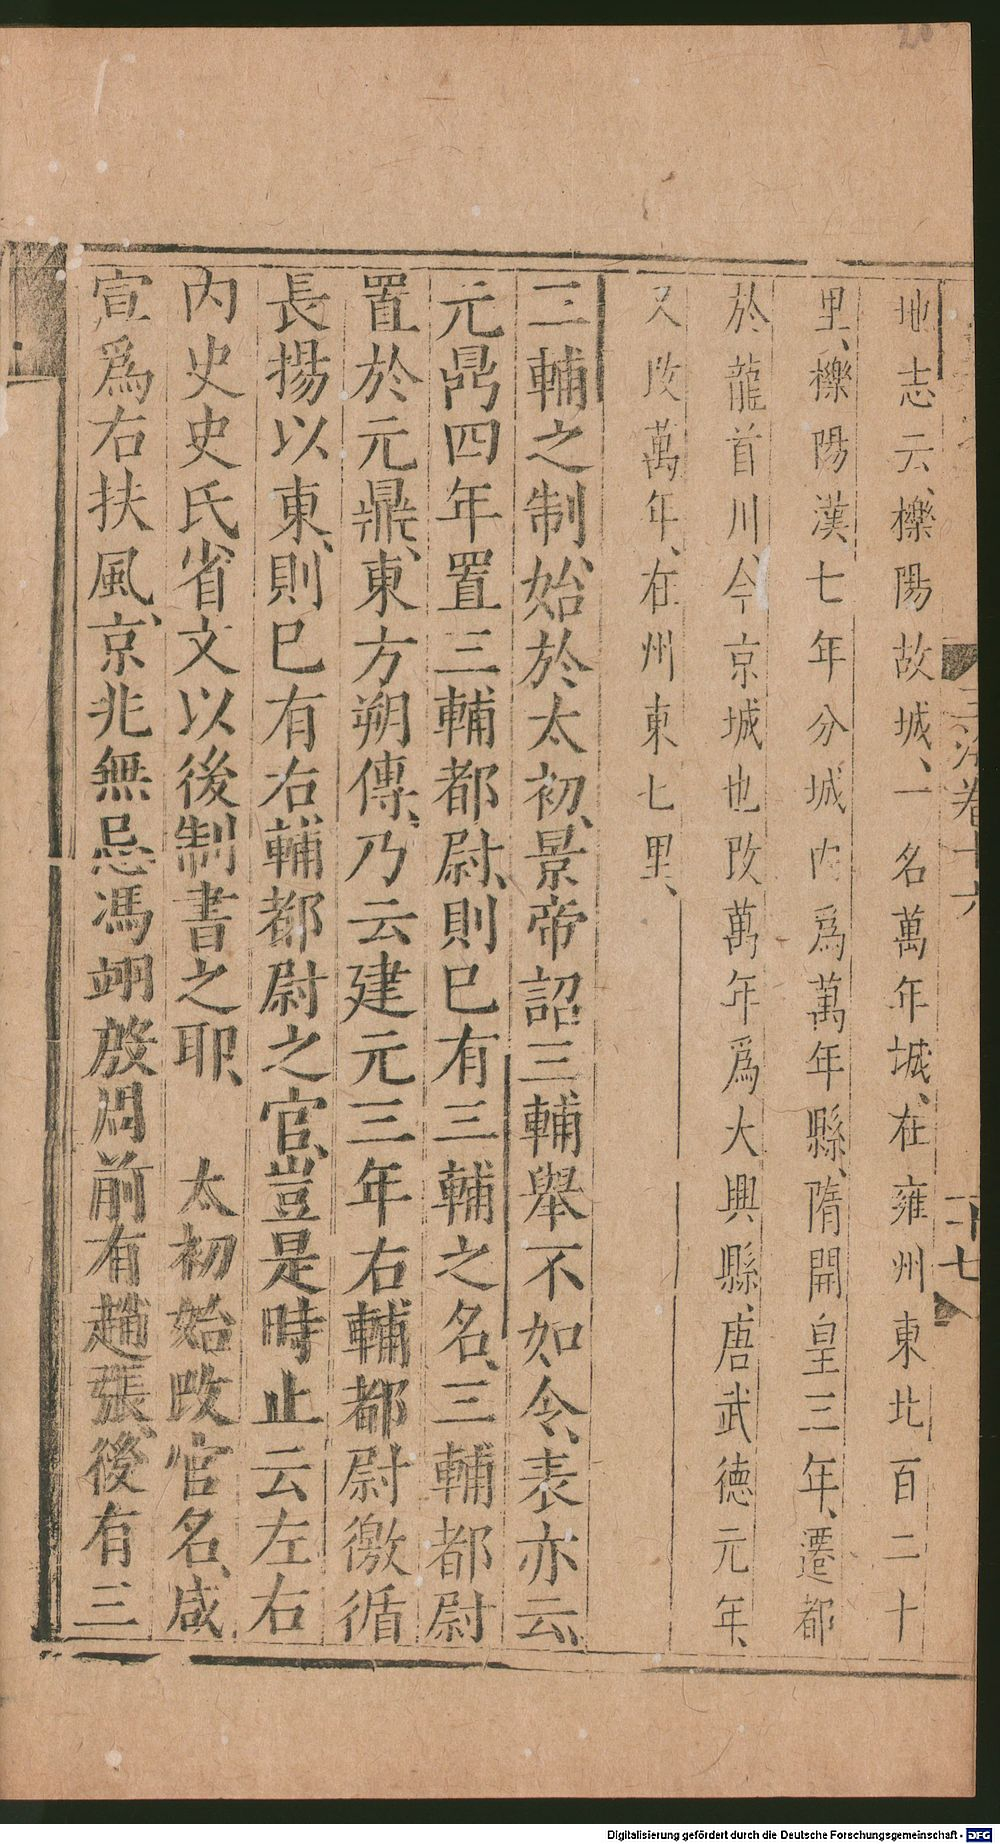 地志云、櫟陽故城、一名萬年城、在雍州東北百二十
里、櫟陽漢七年分城內爲萬年縣、隋開皇三年、遷都
於龍首川、今京城也改萬年爲大興縣、唐武德元年、
又改萬年、在州東七里、
三輔之制、始於太初、景帝詔三輔舉不如令、表亦云、
元鼎四年置三輔都尉、則已有三輔之名、三輔都尉
置於元鼎、東方朔傳、乃云建元三年右輔都尉徼循
長揚以東、則已有右輔都尉之官、豈是時止云左右
內史史氏省文以後制書之耶、　太初始改官名、咸
宣爲右扶風、京兆無忌馮翊殷周前有趙張、後有三
卷十六
十七
Digitalisierung gefördert durch die Deutsche Forschungsgemeinschaft - DFG